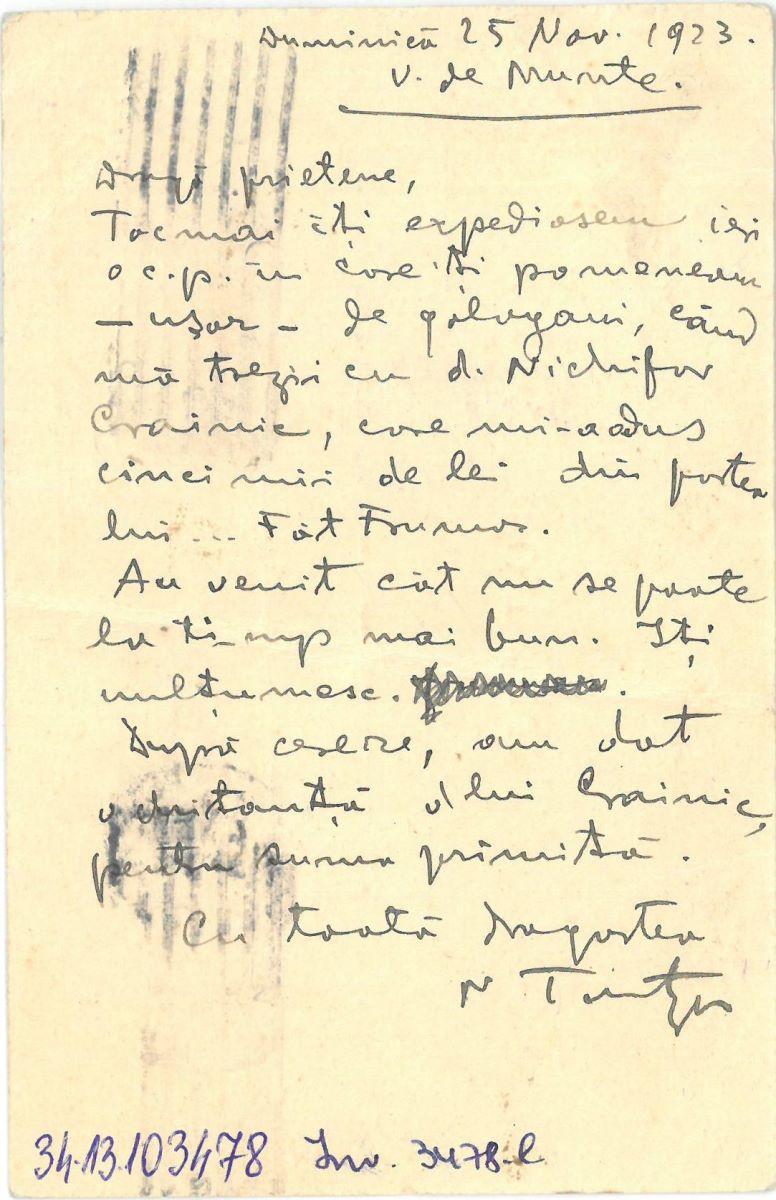 Duminică 25 Nov. 1923.
V. de Munte.
Dragă prietene,
Tocmai îți expediasem ieri
o c.p. în care'ți pomeneam
– ușor – de gologani, când
mă trezii cu d. Nichifor
Crainic, care mi-a adus
cinci mii de lei din partea
lui... Făt Frumos.
Au venit cât nu se poate
la timp mai bun. Iți
mulțumesc.
După cerere, am dat
o chitanță d lui Crainic,
pentru suma primită.
Cu toată dragostea
N Tonitza
34.13.103478 Inv. 3478-l